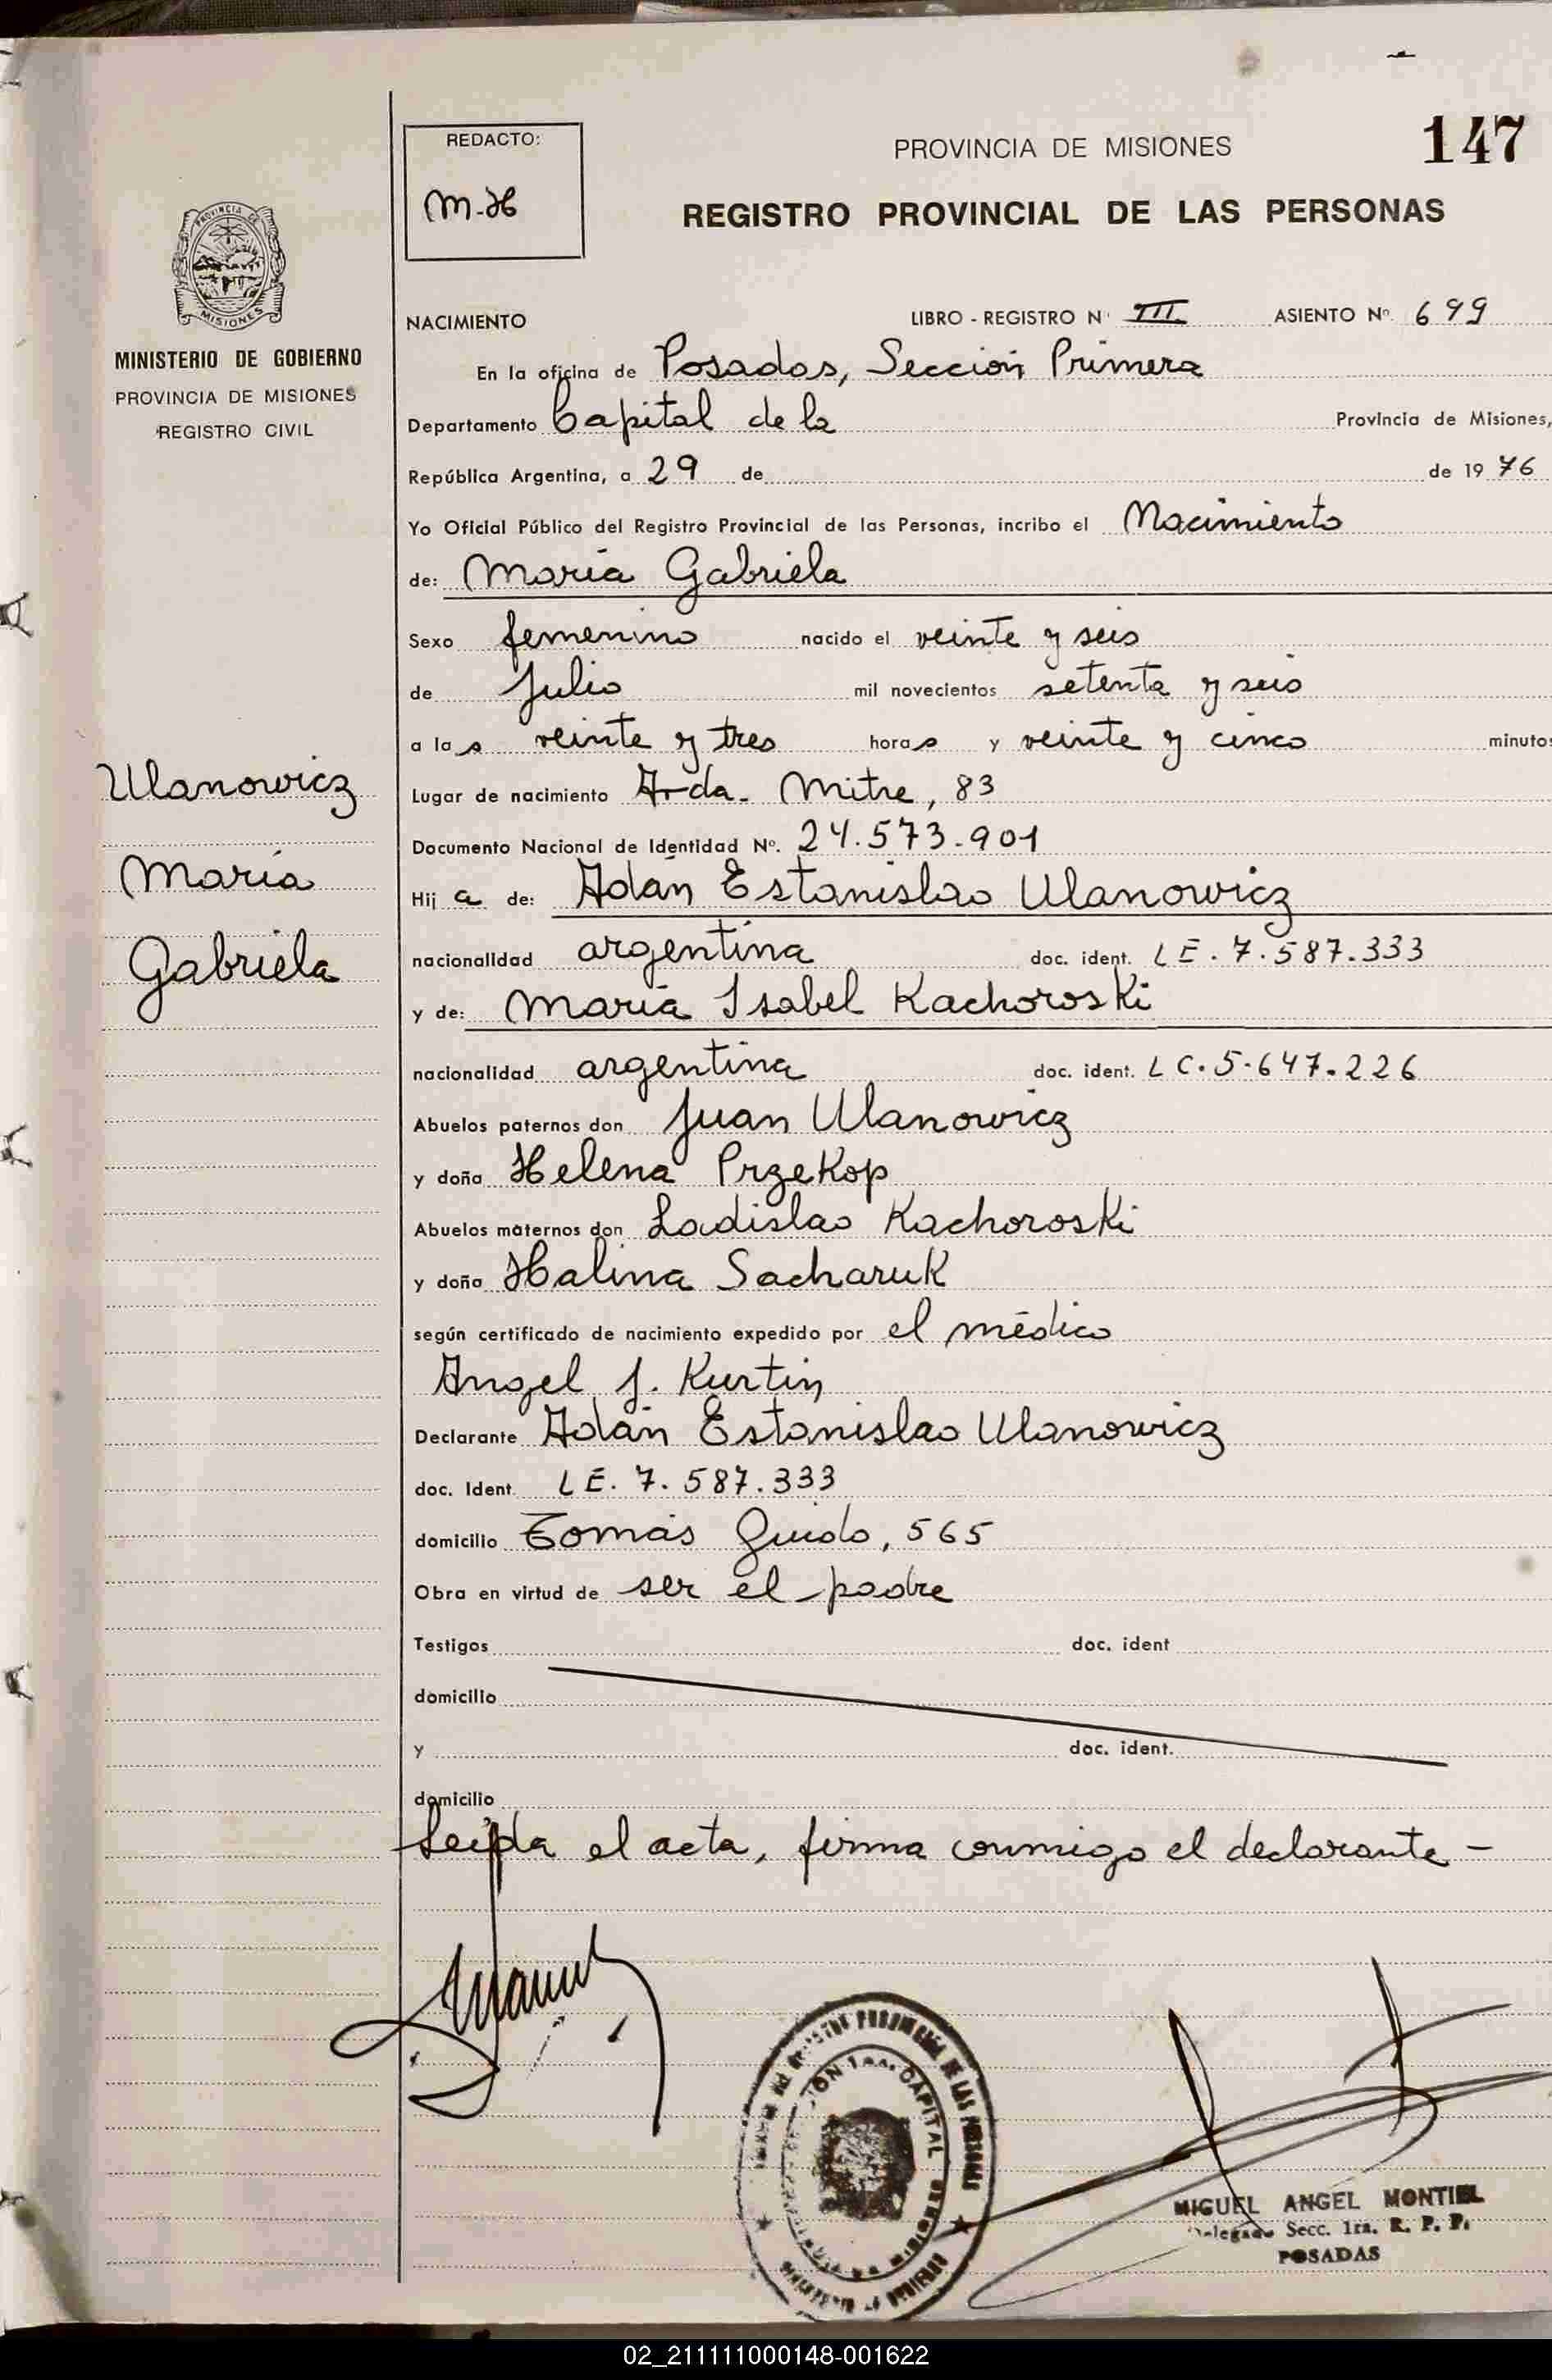 147
REDACTO:
M-H
PROVINCIA DE MISIONES
REGISTRO PROVINCIAL DE LAS PERSONAS
PROVINCIA DE
MISIONES
MINISTERIO DE GOBIERNO
PROVINCIA DE MISIONES
REGISTRO CIVIL
NACIMIENTO LIBRO - REGISTRO Nº III ASIENTO Nº 699
En la oficina de Posadas, Sección Primera
Departamento Capital de la Provincia de Misiones,
República Argentina, a 29 de de 19 76
Yo Oficial Público del Registro Provincial de las Personas, incribo el Nacimiento
de: María Gabriela
Sexo femenino nacido el veinte y seis
de Julio mil novecientos setenta y seis
a las veinte y tres horas y veinte y cinco minutos
Ulanowicz
María
Gabriela
Lugar de nacimiento Avda. Mitre, 83
Documento Nacional de Identidad Nº. 24.573.901
Hij a de: Adán Estanislao Ulanowicz
nacionalidad argentina doc. ident. LE. 7.587.333
y de: María Isabel Kachoroski
nacionalidad argentina doc. ident. LC. 5.647.226
Abuelos paternos don Juan Ulanowicz
y doña Helena Przekop
Abuelos maternos don Ladislao Kachoroski
y doña Halina Sacharuk
según certificado de nacimiento expedido por el médico
Angel J. Kurtin
Declarante Adán Estanislao Ulanowicz
doc. Ident. LE. 7.587.333
domicilio Tomás Guido, 565
Obra en virtud de ser el padre
Testigos doc. ident
domicilio
y doc. ident.
domicilio
Leída el acta, firma conmigo el declarante -
PROVINCIAL DE LAS PERSONAS
CAPITAL
MIGUEL ANGEL MONTIEL
Delegado Secc. 1ra. R. P. P.
POSADAS
02_211111000148-001622